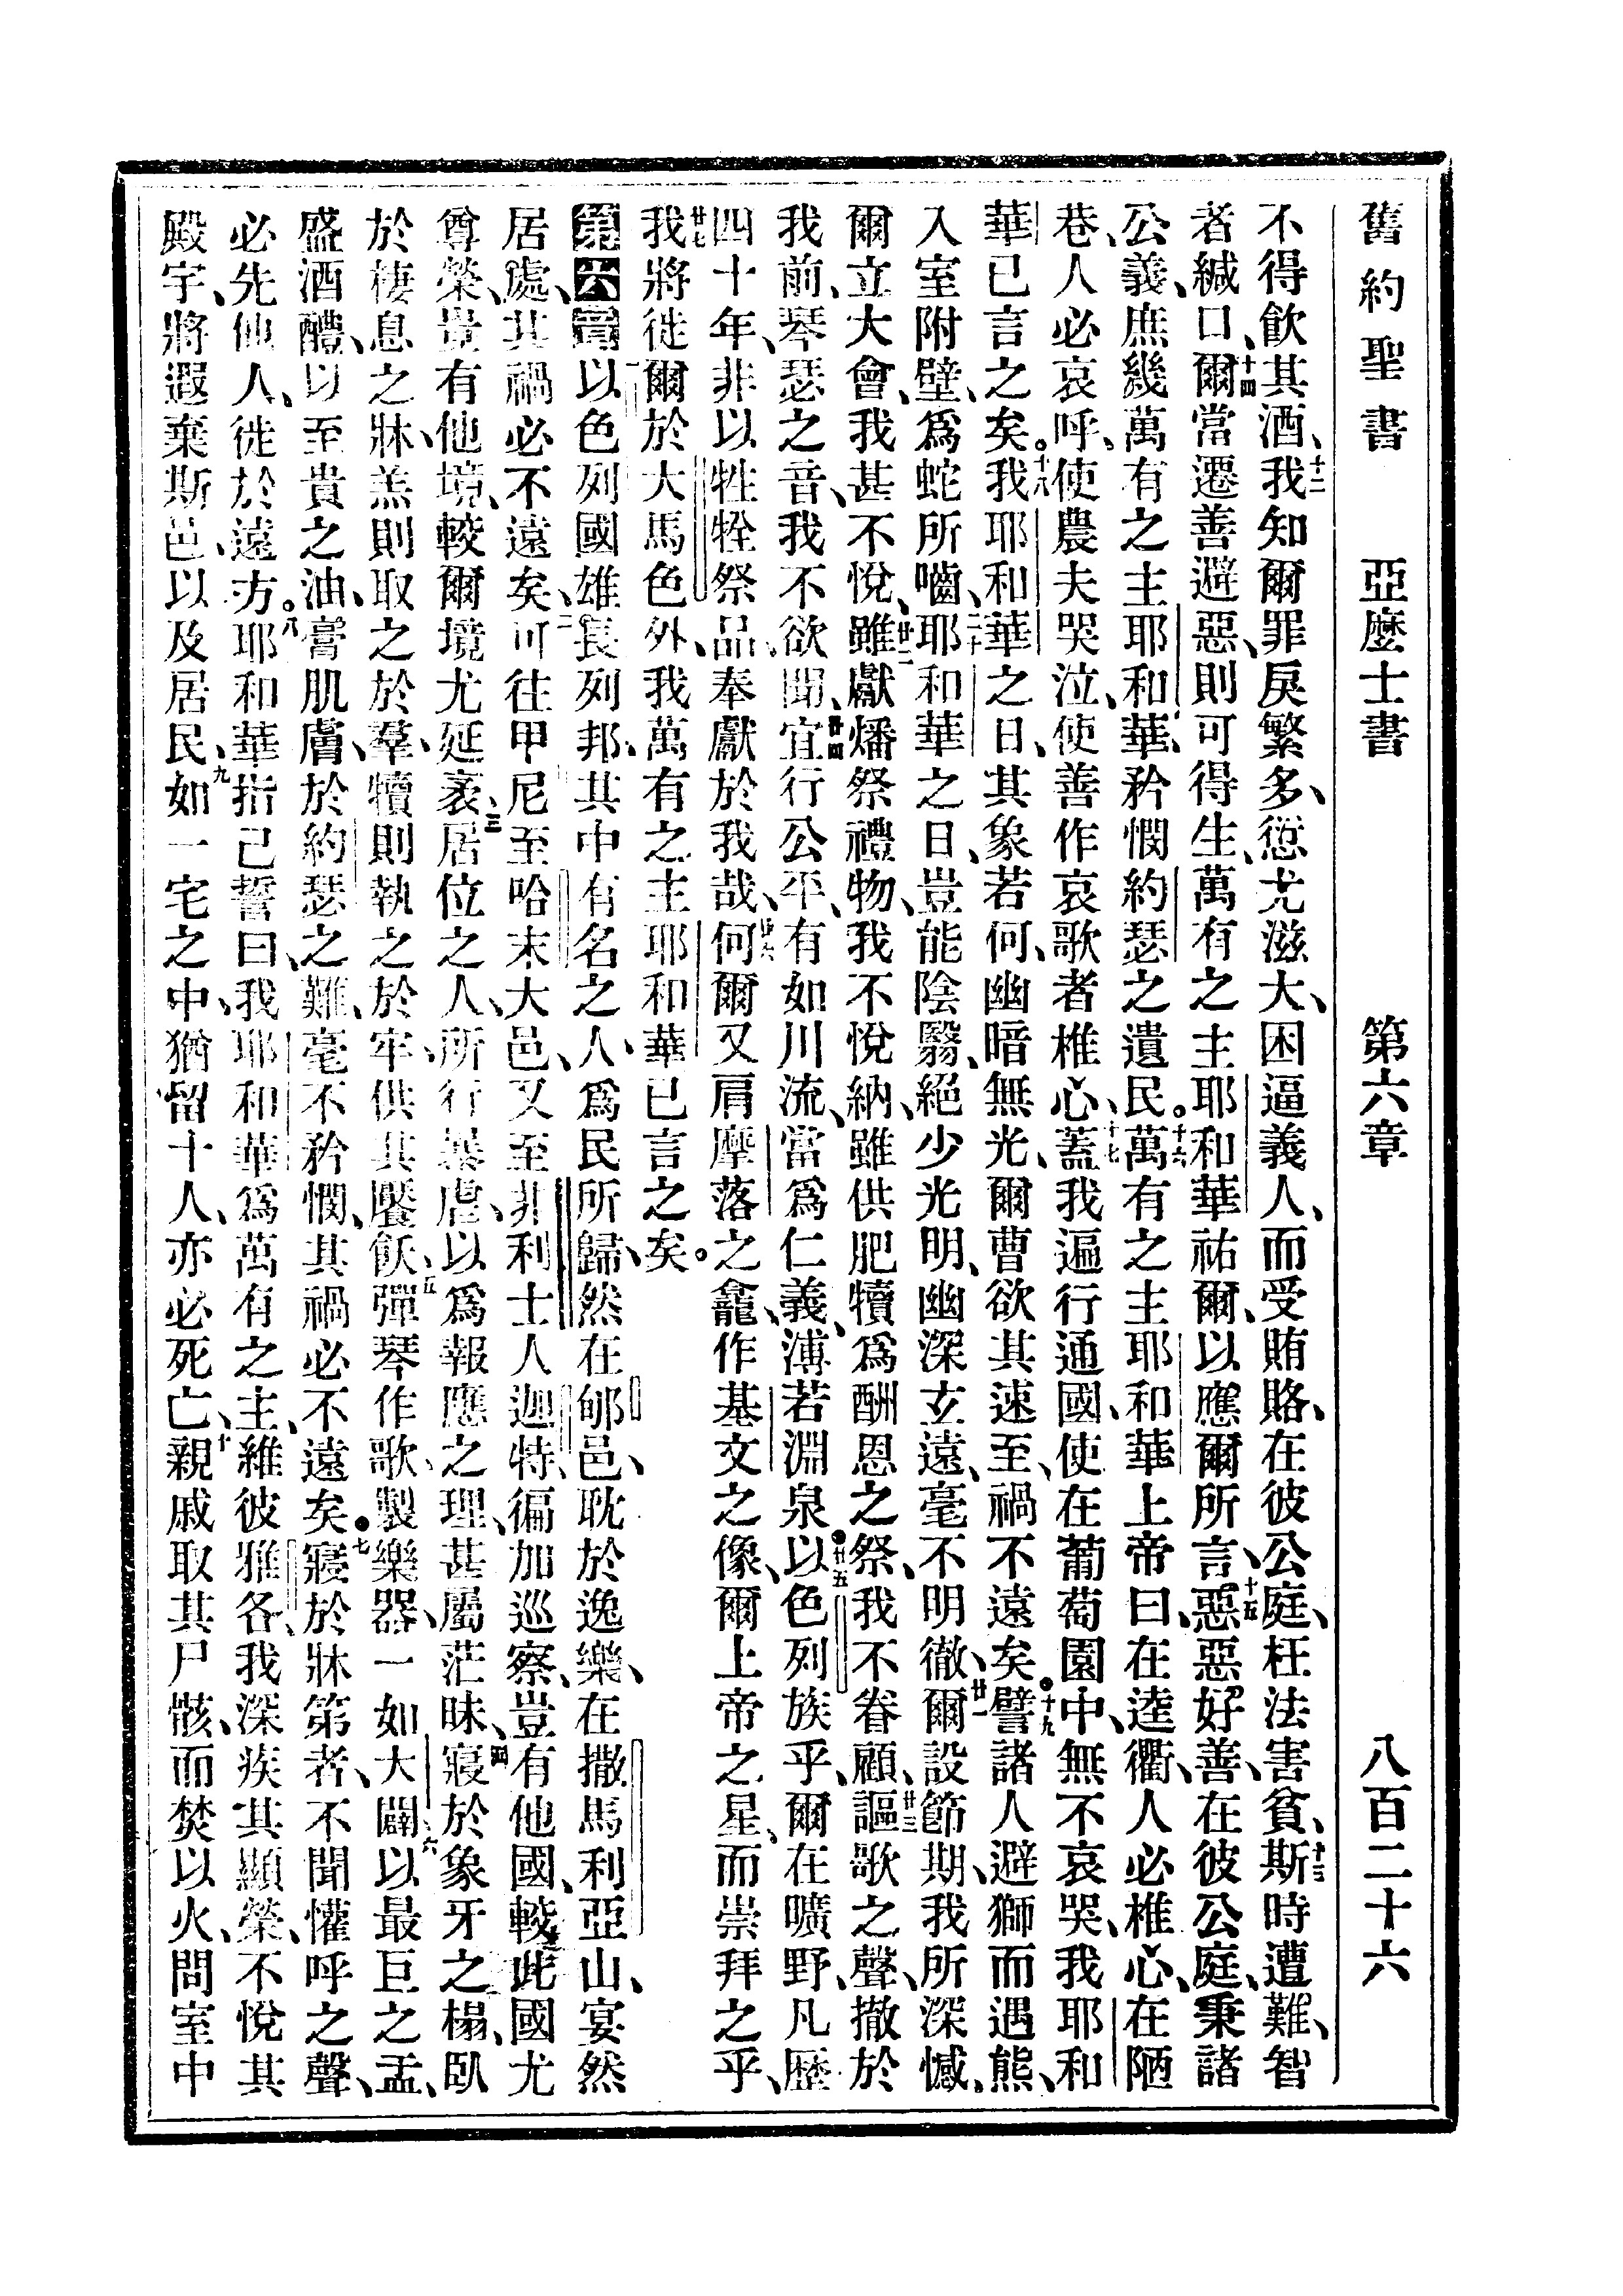 舊約聖書 亞麼士書 第六章 八百二十六
不得飲其酒、十二我知爾罪戾繁多、愆尤滋大、困逼義人、而受賄賂、在彼公庭、枉法害貧、十三斯時遭難、智
者緘口、十四爾當遷善避惡、則可得生、萬有之主耶和華祐爾、以應爾所言、十五惡惡好善、在彼公庭、秉諸
公義、庶幾萬有之主耶和華、矜憫約瑟之遺民。十六萬有之主耶和華上帝曰、在逵衢、人必椎心、在陋
巷、人必哀呼、使農夫哭泣、使善作哀歌者椎心、十七蓋我遍行通國、使在葡萄園中、無不哀哭、我耶和
華已言之矣。十八我耶和華之日、其象若何、幽暗無光、爾曹欲其速至、禍不遠矣。十九譬諸人避獅而遇熊、
入室附壁、爲蛇所嚙、二十耶和華之日、豈能陰翳、絕少光明、幽深玄遠、毫不明徹、廿一爾設節期、我所深憾、
爾立大會、我甚不悅、廿二雖獻燔祭禮物、我不悅納、雖供肥犢爲酬恩之祭、我不眷顧、廿三謳歌之聲、撤於
我前、琴瑟之音、我不欲聞、廿四宜行公平、有如川流、當爲仁義、溥若淵泉。廿五以色列族乎、爾在曠野、凡歷
四十年、非以牲牷祭品、奉獻於我哉、廿六何爾又肩摩落之龕、作基文之像、爾上帝之星、而崇拜之乎、
廿七我將徙爾於大馬色外、我萬有之主耶和華已言之矣。
第六章以色列國雄長列邦、其中有名之人、爲民所歸、然在郇邑、耽於逸樂、在撒馬利亞山、宴然
居處、其禍必不遠矣、二可往甲尼至哈末大邑、又至非利士人迦特、徧加巡察、豈有他國、較此國尤
尊榮、豈有他境、較爾境尤延袤、三居位之人、所行暴虐、以爲報應之理、甚屬茫昧、四寢於象牙之榻、臥
於棲息之牀、羔則取之於羣、犢則執之於牢、供其饜飫、五彈琴作歌、製樂器、一如大闢、六以最巨之盂、
盛酒醴、以至貴之油、膏肌膚、於約瑟之難、毫不矜憫、其禍必不遠矣。七寢於牀第者、不聞懽呼之聲、
必先他人、徙於遠方。八耶和華指己誓曰、我耶和華爲萬有之主、維彼雅各、我深疾其顯榮、不悅其
殿宇、將遐棄斯邑、以及居民、九如一宅之中、猶留十人、亦必死亡、十親戚取其尸骸、而焚以火、問室中